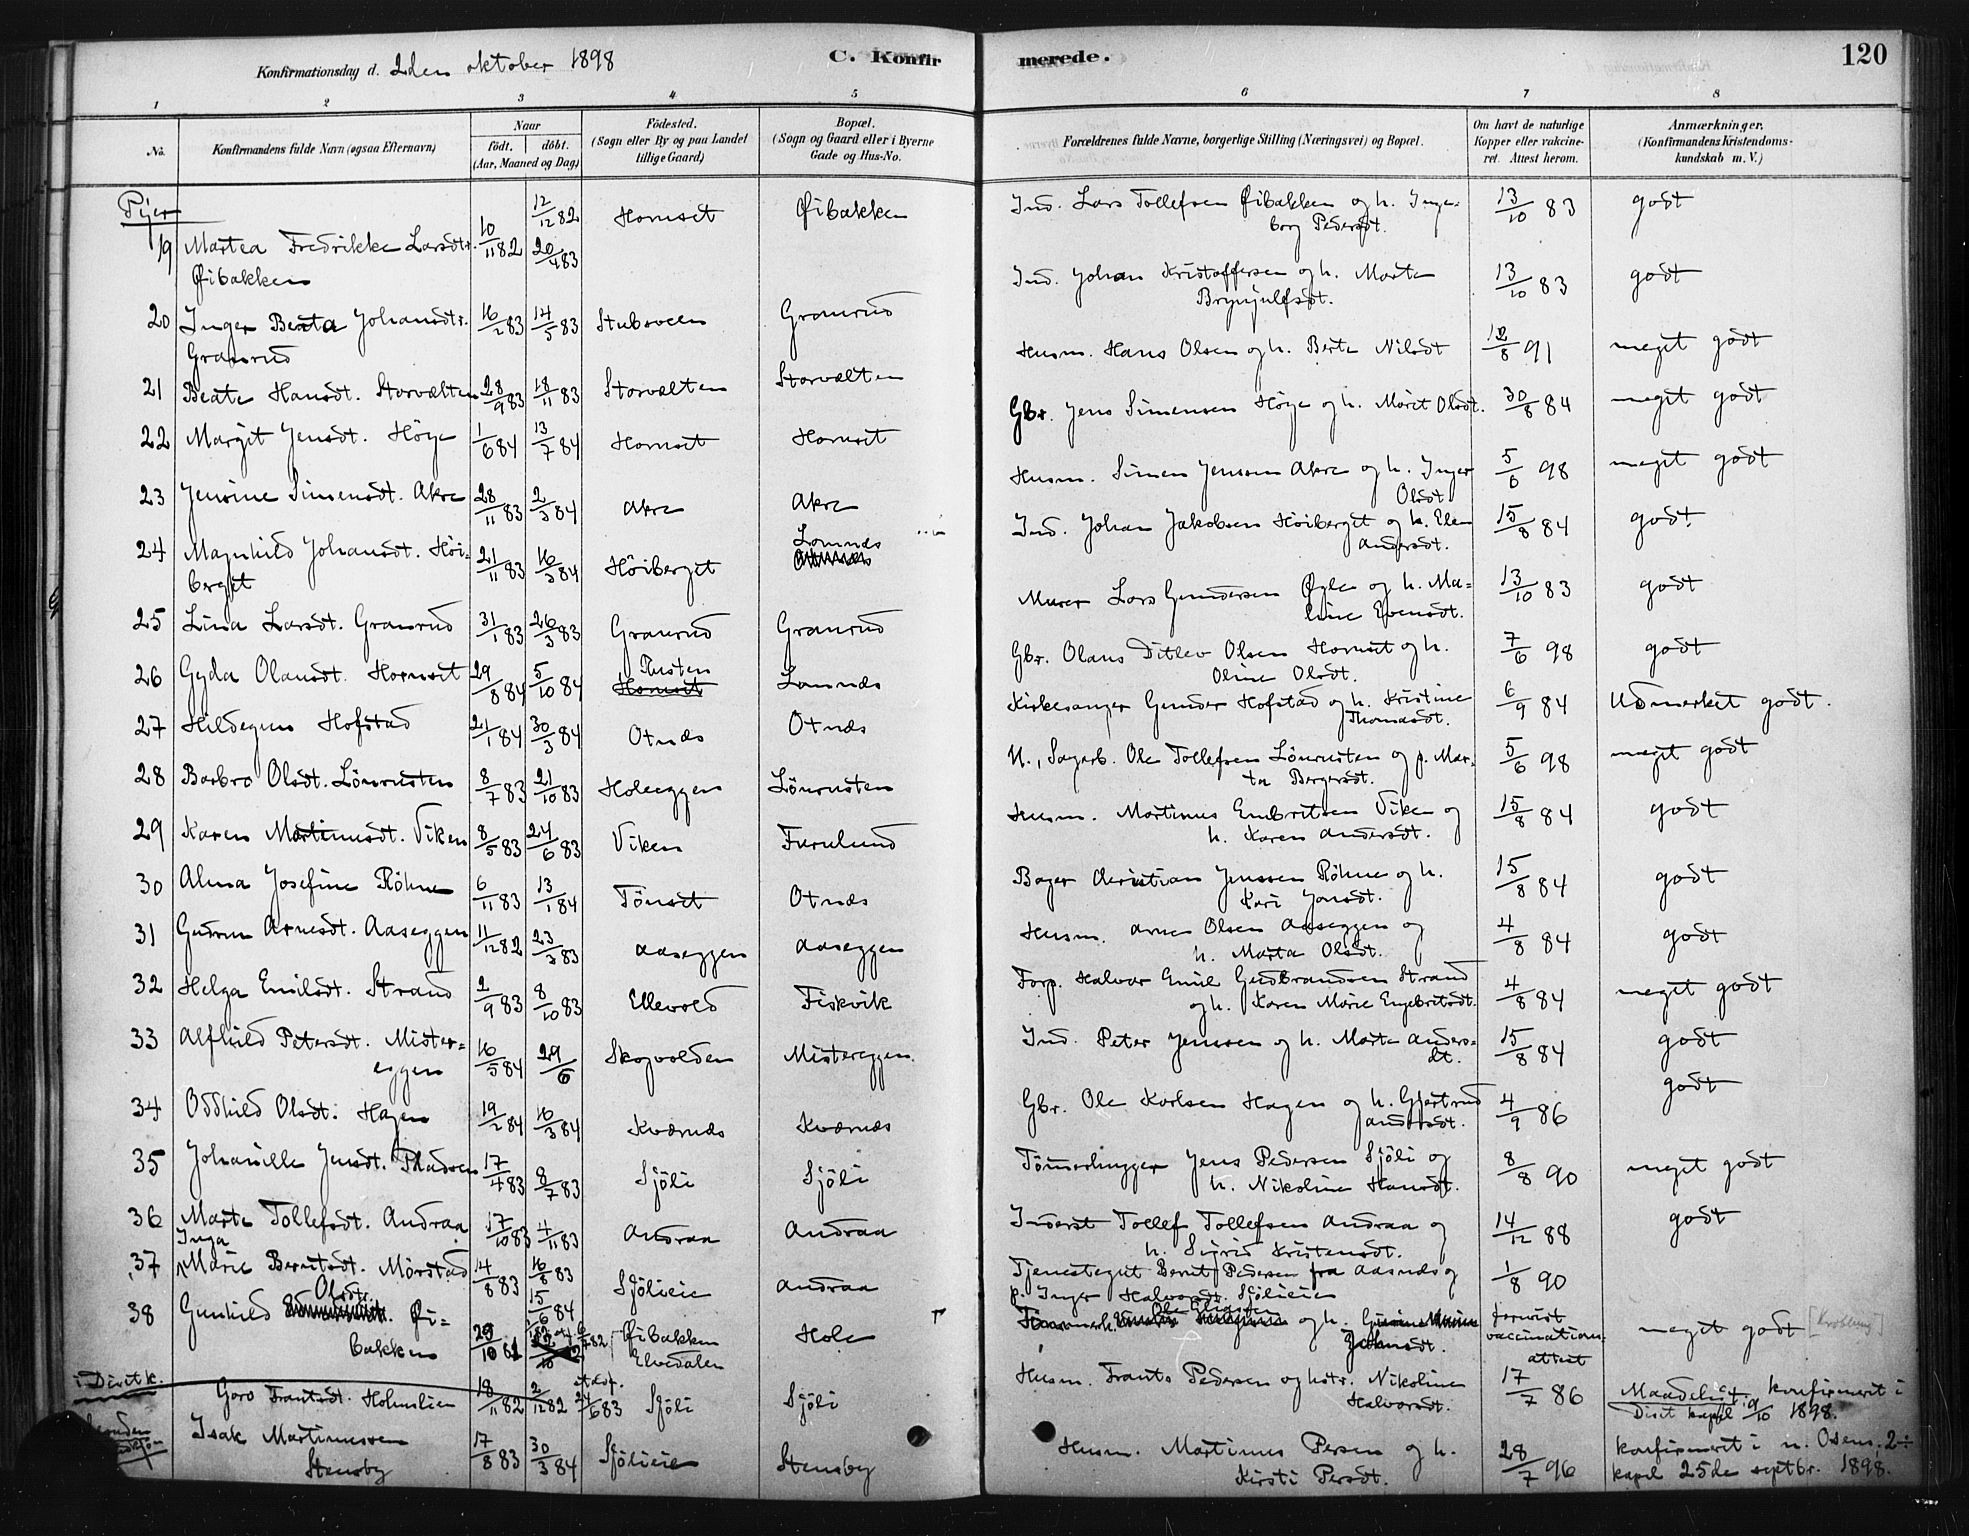 Konfirmationsdag d. 2den oktober 1898
C. Konfirmerede.
120
1 2 3 4 5 6 7 8
No.
Konfirmandens fulde Navn (ogsaa Efternavn)
Naar
födt. döbt.
(Aar, Maaned og Dag)
Födested.
(Sogn eller By og paa Landet
tillige Gaard)
Bopæl.
(Sogn og Gaard eller i Byerne
Gade og Hus-No.
Forældrenes fulde Navne, borgerlige Stilling (Næringsvei) og Bopæl.
Om havt de naturlige
Kopper eller vakcine-
ret. Attest herom.
Anmærkninger.
(Konfirmandens Kristendoms-
kundskab m. V.)
Piger
19 Martea Fredrikke Larsdtr. 10/11 82 12/12 82 Hornset Øibakken Ind. Lars Tollefsen Øibakken og h. Inge- 13/10 83 godt
Øibakken 20/4 83 borg Pedersdt.
20 Inger Beata Johansdtr. 16/2 83 14/5 83 Stubsveen Granrud Ind. Johan Kristoffersen og h. Marte 13/10 83 godt
Granrud Brynjulfsdt.
21 Beate Hansdt. Storvælten 28/9 83 18/11 83 Storvælten Storvælten Husm. Hans Olsen og h. Berte Nilsdt 12/8 91 meget godt
22 Margit Jensdt. Höye 1/6 84 13/7 84 Hornset Hornset Gbr. Jens Simensen Höye og h. Maret Olsdt. 30/8 84 meget godt
23 Jensine Simensdt. Akre 28/11 83 2/3 84 Akre Akre Husm. Simen Jenssen Akre og h. Inger 5/6 98 meget godt
Olsdt.
24 Magnhild Johansdt. Höi- 21/11 83 16/3 84 Höiberget Lomnæs Ind. Johan Jakobsen Höiberget og h. Elen 15/8 84 godt
berget Andersdt.
25 Lina Larsdt. Granrud 31/1 83 26/3 83 Granrud Granrud Murer Lars Gundersen Øyle og h. Ma- 13/10 83 godt
line Evensdt.
26 Gyda Olausdt. Hornset 29/8 84 5/10 84 Rusten Hornset Lomnæs Gbr. Olaus Ditlev Olsen Hornset og h. 7/6 98 godt
Oline Olsdt.
27 Hildegun Hofstad 21/1 84 30/3 84 Otnæs Otnæs Kirkesanger Gunder Hofstad og h. Kristine 6/9 84 Udmerket godt.
Thomasdt.
28 Barbro Olsdt. Lönrusten 8/7 83 21/10 83 Holeeggen Lönrusten U., Sagarb. Ole Tollefsen Lönrusten og p. Mar- 5/6 98 meget godt
ta Bergersdt.
29 Karen Martinusdt. Viken 8/5 83 24/6 83 Viken Furulund Husm. Martinus Embretsen Viken og 15/8 84 godt
h. Karen Andersdt.
30 Alma Josefine Röhne 6/11 83 13/1 84 Tönset Otnæs Bager Christian Jenssen Röhne og h. 15/8 84 godt
Kari Jonsdt.
31 Gudrun Arnesdt. Aaseggen 11/12 82 23/3 83 Aaseggen Aaseggen Husm. Arne Olsen Aaseggen og 4/8 84 godt
h. Marta Olsdt.
32 Helga Emilsdt. Strand 2/9 83 8/10 83 Ellevold Fiskvik Forp. Halvor Emil Gudbrandsen Strand 4/8 84 meget godt
og h. Karen Marie Engebretsdt.
33 Alfhild Petersdt. Mister- 16/5 84 29/6 Skogvolden Mistereggen. Ind. Peter Jenssen og h. Marte Anders- 15/8 84 godt
eggen dt.
34 Oddhild Olsdt. Hagen 19/2 84 16/3 84 Kværnæs Kværnæs Gbr. Ole Karlsen Hagen og h. Gjertrud 4/9 86 godt
Andersdt.
35 Johanille Jensdt. Pladsen 17/4 83 8/7 83 Sjöli Sjöli Tömmerhugger Jens Pedersen Sjöli og 8/8 90 meget godt
h. Nikoline Hansdt.
36 Marte Tollefsdt. Andraa 17/10 83 4/11 83 Andraa Andraa Inderst Tollef Tollefsen Andraa og 14/12 88 godt
h. Sigrid Kristensdt.
Inga
37 Marie Berntsdt. Mörstad 14/8 83 16/8 83 Sjölieie Andraa Tjenestegut Bernt Pedersen fra Aasnæs og 1/8 90
15/6 84 p. Inger Halvorsdt. Sjölieie
38 Gunhild Olsdtr. Øi- Øibakken Hole Ole og h. fornöist meget godt
bakken Elvedalen Johnsdt. vaccinations
attest
i Diset k. Goro Frantsdt. Holmslien 18/11 82 2/12 82 24/6 83 Sjöli Sjöli Husm. Frants Pedersen og hstr. Nikoline 17/7 86 Maadeligt. konfirmeret i
Halvorsdt. Diset kapel 9/10 1898.
Isak Martinussen 17/8 83 30/3 84 Sjölieie Stensby Husm. Martinus Persen og h. 28/7 96 konfirmeret i n. Osens
Stensby Kirsti Persdt. kapel 25de septbr. 1898.